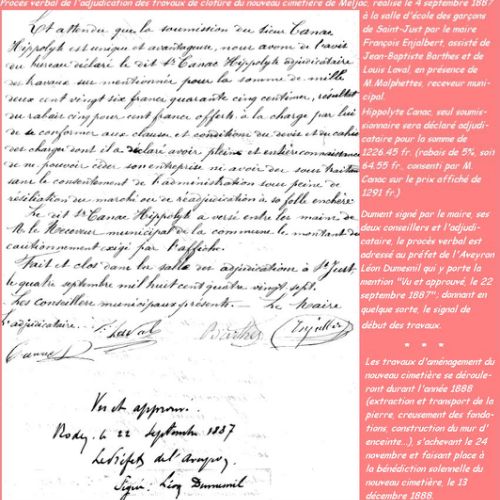 Procès verbal de l'adjudication des travaux de clôture du nouveau cimetière de Meljac, réalisé le 4 septembre 1887
à la salle d'école des garçons
de Saint-Just par le maire
François Enjalbert, assisté de
Jean-Baptiste Barthes et de
Louis Laval, en présence de
M.Malphettes, receveur muni-
cipal.
Hippolyte Canac, seul soumis-
sionnaire sera déclaré adjudi-
cataire pour la somme de
1226.45 fr. (rabais de 5%, soit
64.55 fr., consenti par M.
Canac sur le prix affiché de
1291 fr.)
Dument signé par le maire, ses
deux conseillers et l'adjudi-
cataire, le procès verbal est
adressé au préfet de l'Aveyron
Léon Dumesnil qui y porte la
mention "Vu et approuvé, le 22
septembre 1887"; donnant en
quelque sorte, le signal de
début des travaux.
* * *
Les travaux d'aménagement du
nouveau cimetière se déroule-
ront durant l'année 1888
(extraction et transport de la
pierre, creusement des fonda-
tions, construction du mur d'
enceinte...), s'achevant le 24
novembre et faisant place à
la bénédiction solennelle du
nouveau cimetière, le 13
décembre 1888.
Et attendu que la soumission du sieur Canac
Hippolyte est unique et avantageuse, nous avons de l'avis
du bureau déclaré le dit Sr Canac Hippolyte adjudicataire
des travaux sus mentionnés pour la somme de mille
deux cent vingt six francs quarante cinq centimes, résultat
du rabais cinq pour cent francs offerts à la charge par lui
de se conformer aux clauses et conditions du devis et du cahier
des charges dont il a déclaré avoir pleine et entière connaissance
de ne pouvoir céder son entreprise ni avoir des sous traitants
sans le consentement de l'administration sous peine de
résiliation du marché ou de réadjudication à sa folle enchère.
Le dit Sr Canac Hippolyte a versé entre les mains de
M. le Receveur municipal de la commune le montant du
cautionnement exigé par l'affiche.
Fait et clos dans la salle des adjudications à St Just,
le quatre septembre mil huit cent quatre vingt sept.
Les conseillers municipaux présents. Le Maire
L'adjudicataire. L. Laval Barthes Enjalbert
Canac
Vu et approuvé
Rodez, le 22 septembre 1887
Le Préfet de l'Aveyron
Signé: Léon Dumesnil